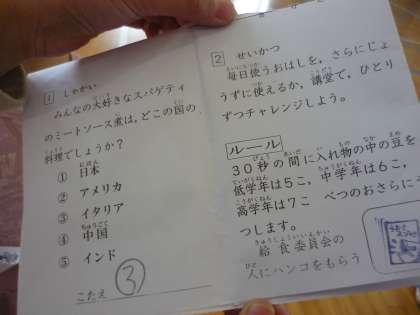 1 しゃかい
みんなの大好きなスパゲティ
のミートソース煮は、どこの国の
料理でしょうか？
① 日本
② アメリカ
③ イタリア
④ 中国
⑤ インド
こたえ ③
2 せいかつ
毎日使うおはしを、さらにじょ
うずに使えるか、講堂で、ひとり
ずつチャレンジしよう。
ルール
30秒の間に入れ物の中の豆を
低学年は5こ，中学年は6こ，
高学年は7こ べつのおさらに
つします。
給食委員会の
人にハンコをもらう